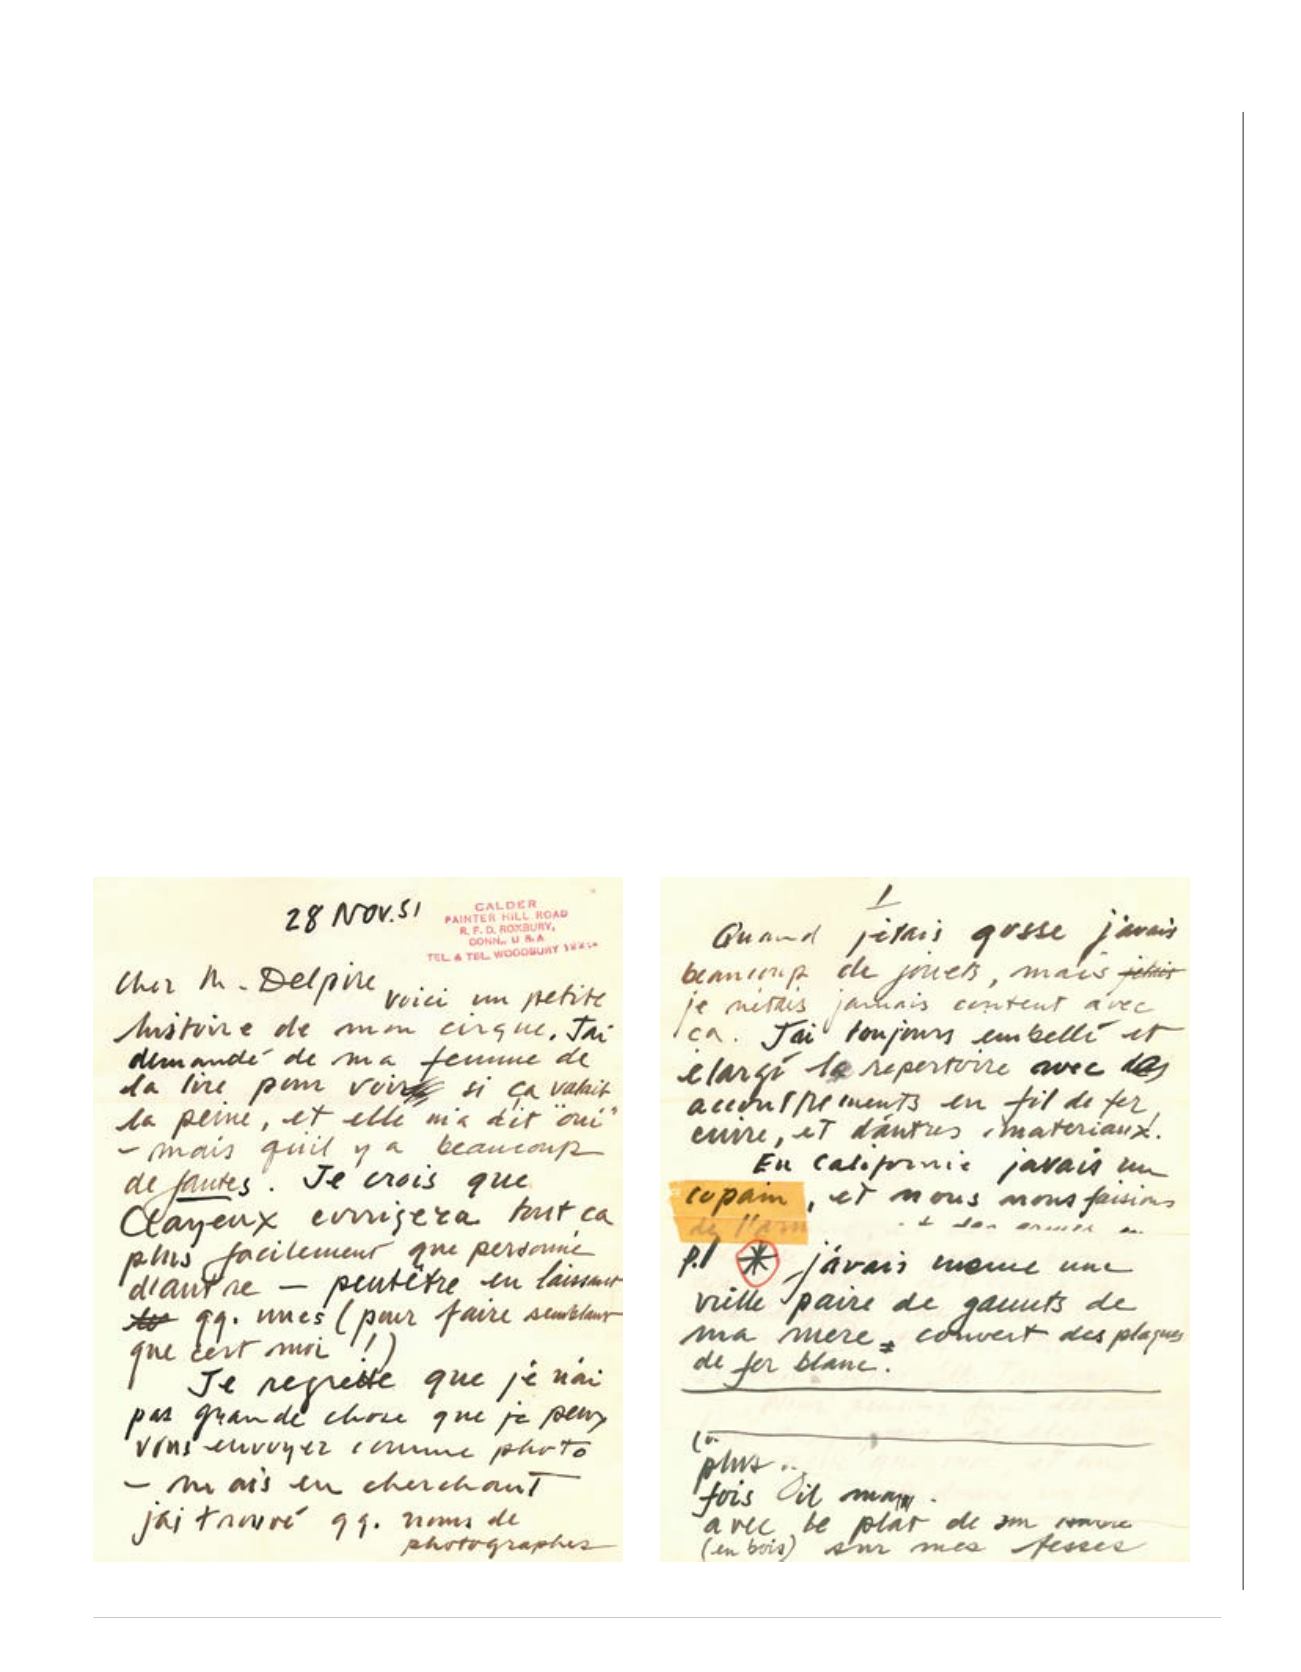 28 NOV. 51
CALDER
PAINTER HILL ROAD
R. F. D. ROXBURY,
CONN., U S A
TEL. & TEL. WOODBURY
Cher M. Delpire
voici un petite
histoire de mon cirque. J'ai
demandé de ma femme de
la lire pour voir si ça valait
la peine, et elle m'a dit "oui"
– mais qu'il y a beaucoup
de fautes. Je crois que
Clayeux corrigera tout ca
plus facilement que personne
d'autre — peutêtre en laissant
qq. unes (pour faire semblant
que c'est moi !)
Je regrette que je n'ai
pas grande chose que je peux
vous envoyer comme photo
– mais en cherchant
j'ai trouvé qq. noms de
photographes
1
Quand j'etais gosse j'avais
beaucoup de jouets, mais j'étais
je n'étais jamais content avec
ca. J'ai toujours embelli et
élargi le repertoire avec des
accoutrements en fil de fer,
cuivre, et d'autres materiaux.
En Californie j'avais un
copain, et nous nous faisions
p.1 * j'avais meme une
vielle paire de gannts de
ma mere couvert des plaques
de fer blanc.
plus
fois il
avec le plat de son
(en bois) sur mes fesses